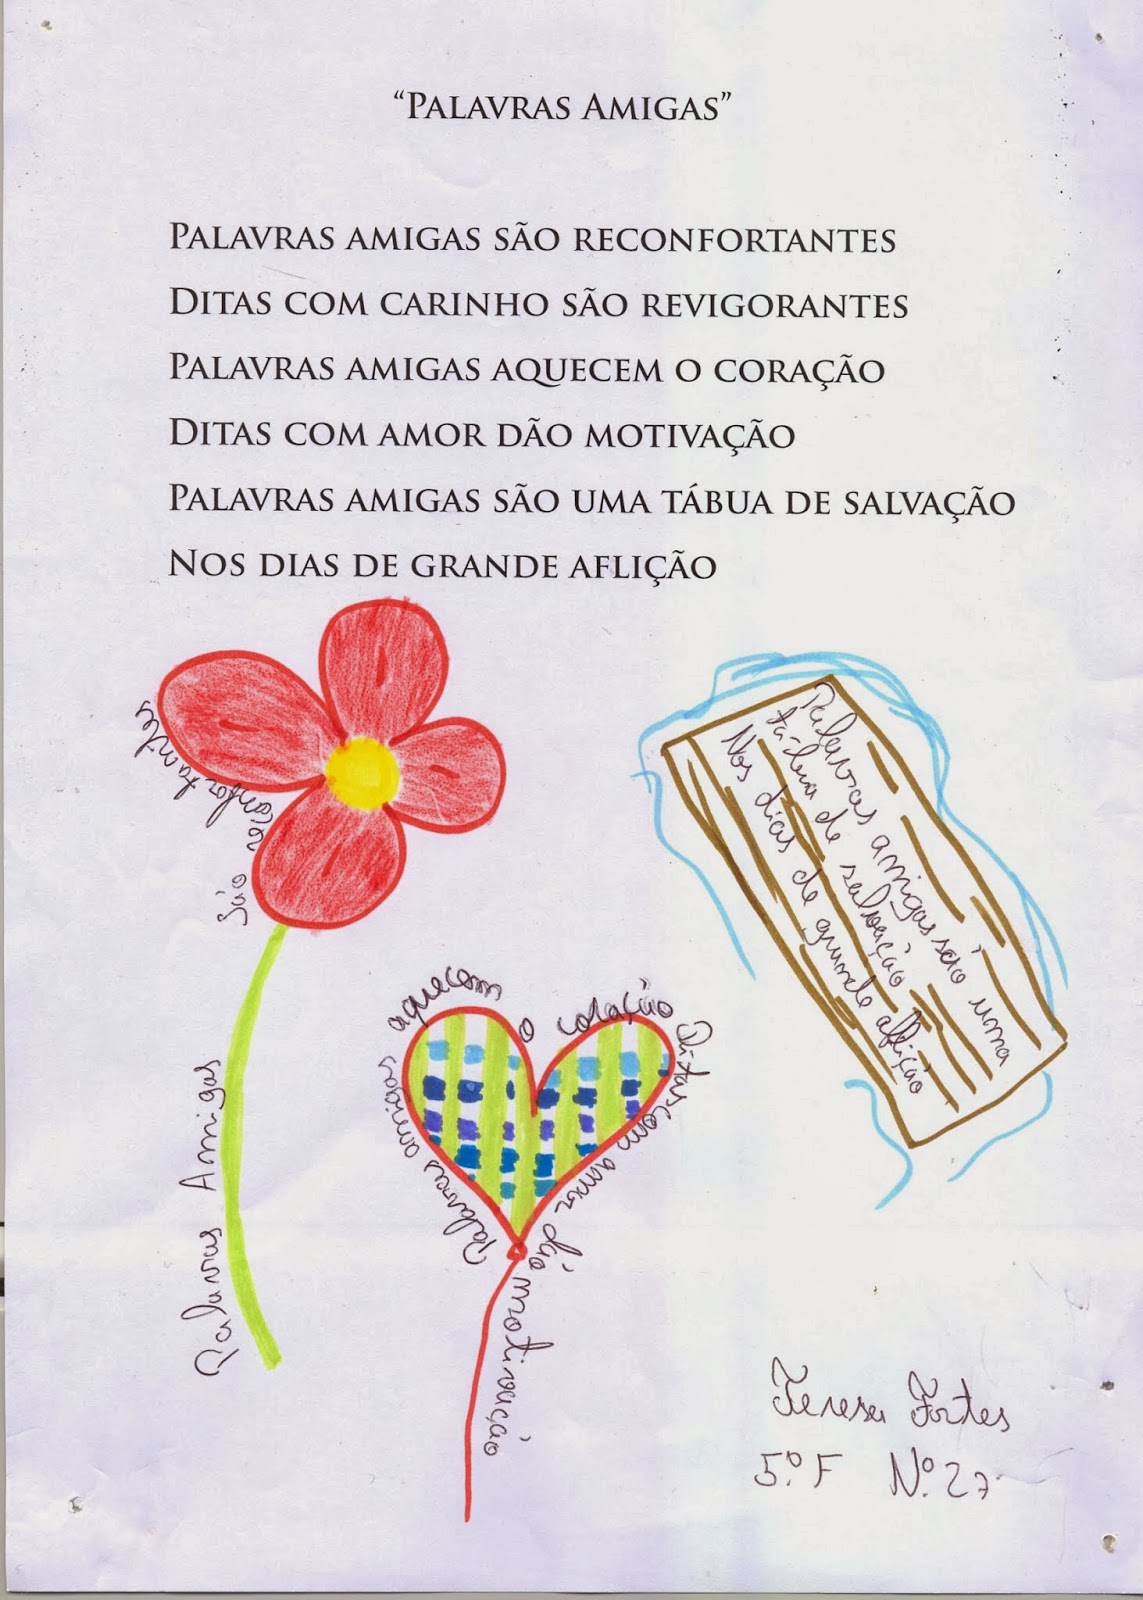 “Palavras Amigas”
Palavras amigas são reconfortantes
Ditas com carinho são revigorantes
Palavras amigas aquecem o coração
Ditas com amor dão motivação
Palavras amigas são uma tábua de salvação
Nos dias de grande aflição
Palavras Amigas
são reconfortantes
Palavras amigas aquecem o coração
Ditas com amor dão motivação
Palavras amigas são uma
tábua de salvação
Nos dias de grande aflição
Teresa Fortes
5.º F Nº. 27